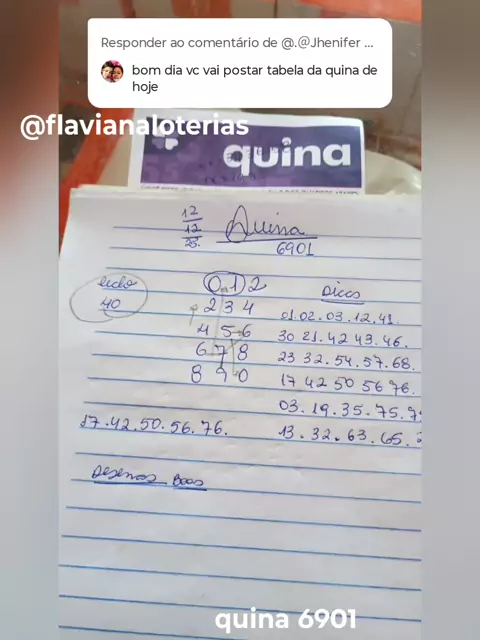 Responder ao comentário de @.@Jhenifer ...
bom dia vc vai postar tabela da quina de
hoje
@flavianaloterias
quina
12
12
25.
Quina
6901
ciclo
40
012
234
456
678
890
Dicas
01.02.03.12.41.
30 21.42 43.46.
23 32.54.57.68.
17 42 50 56 76.
03.19.35.75.7
13.32.63.65.
17.42.50.56.76.
Dezenas Boas
quina 6901